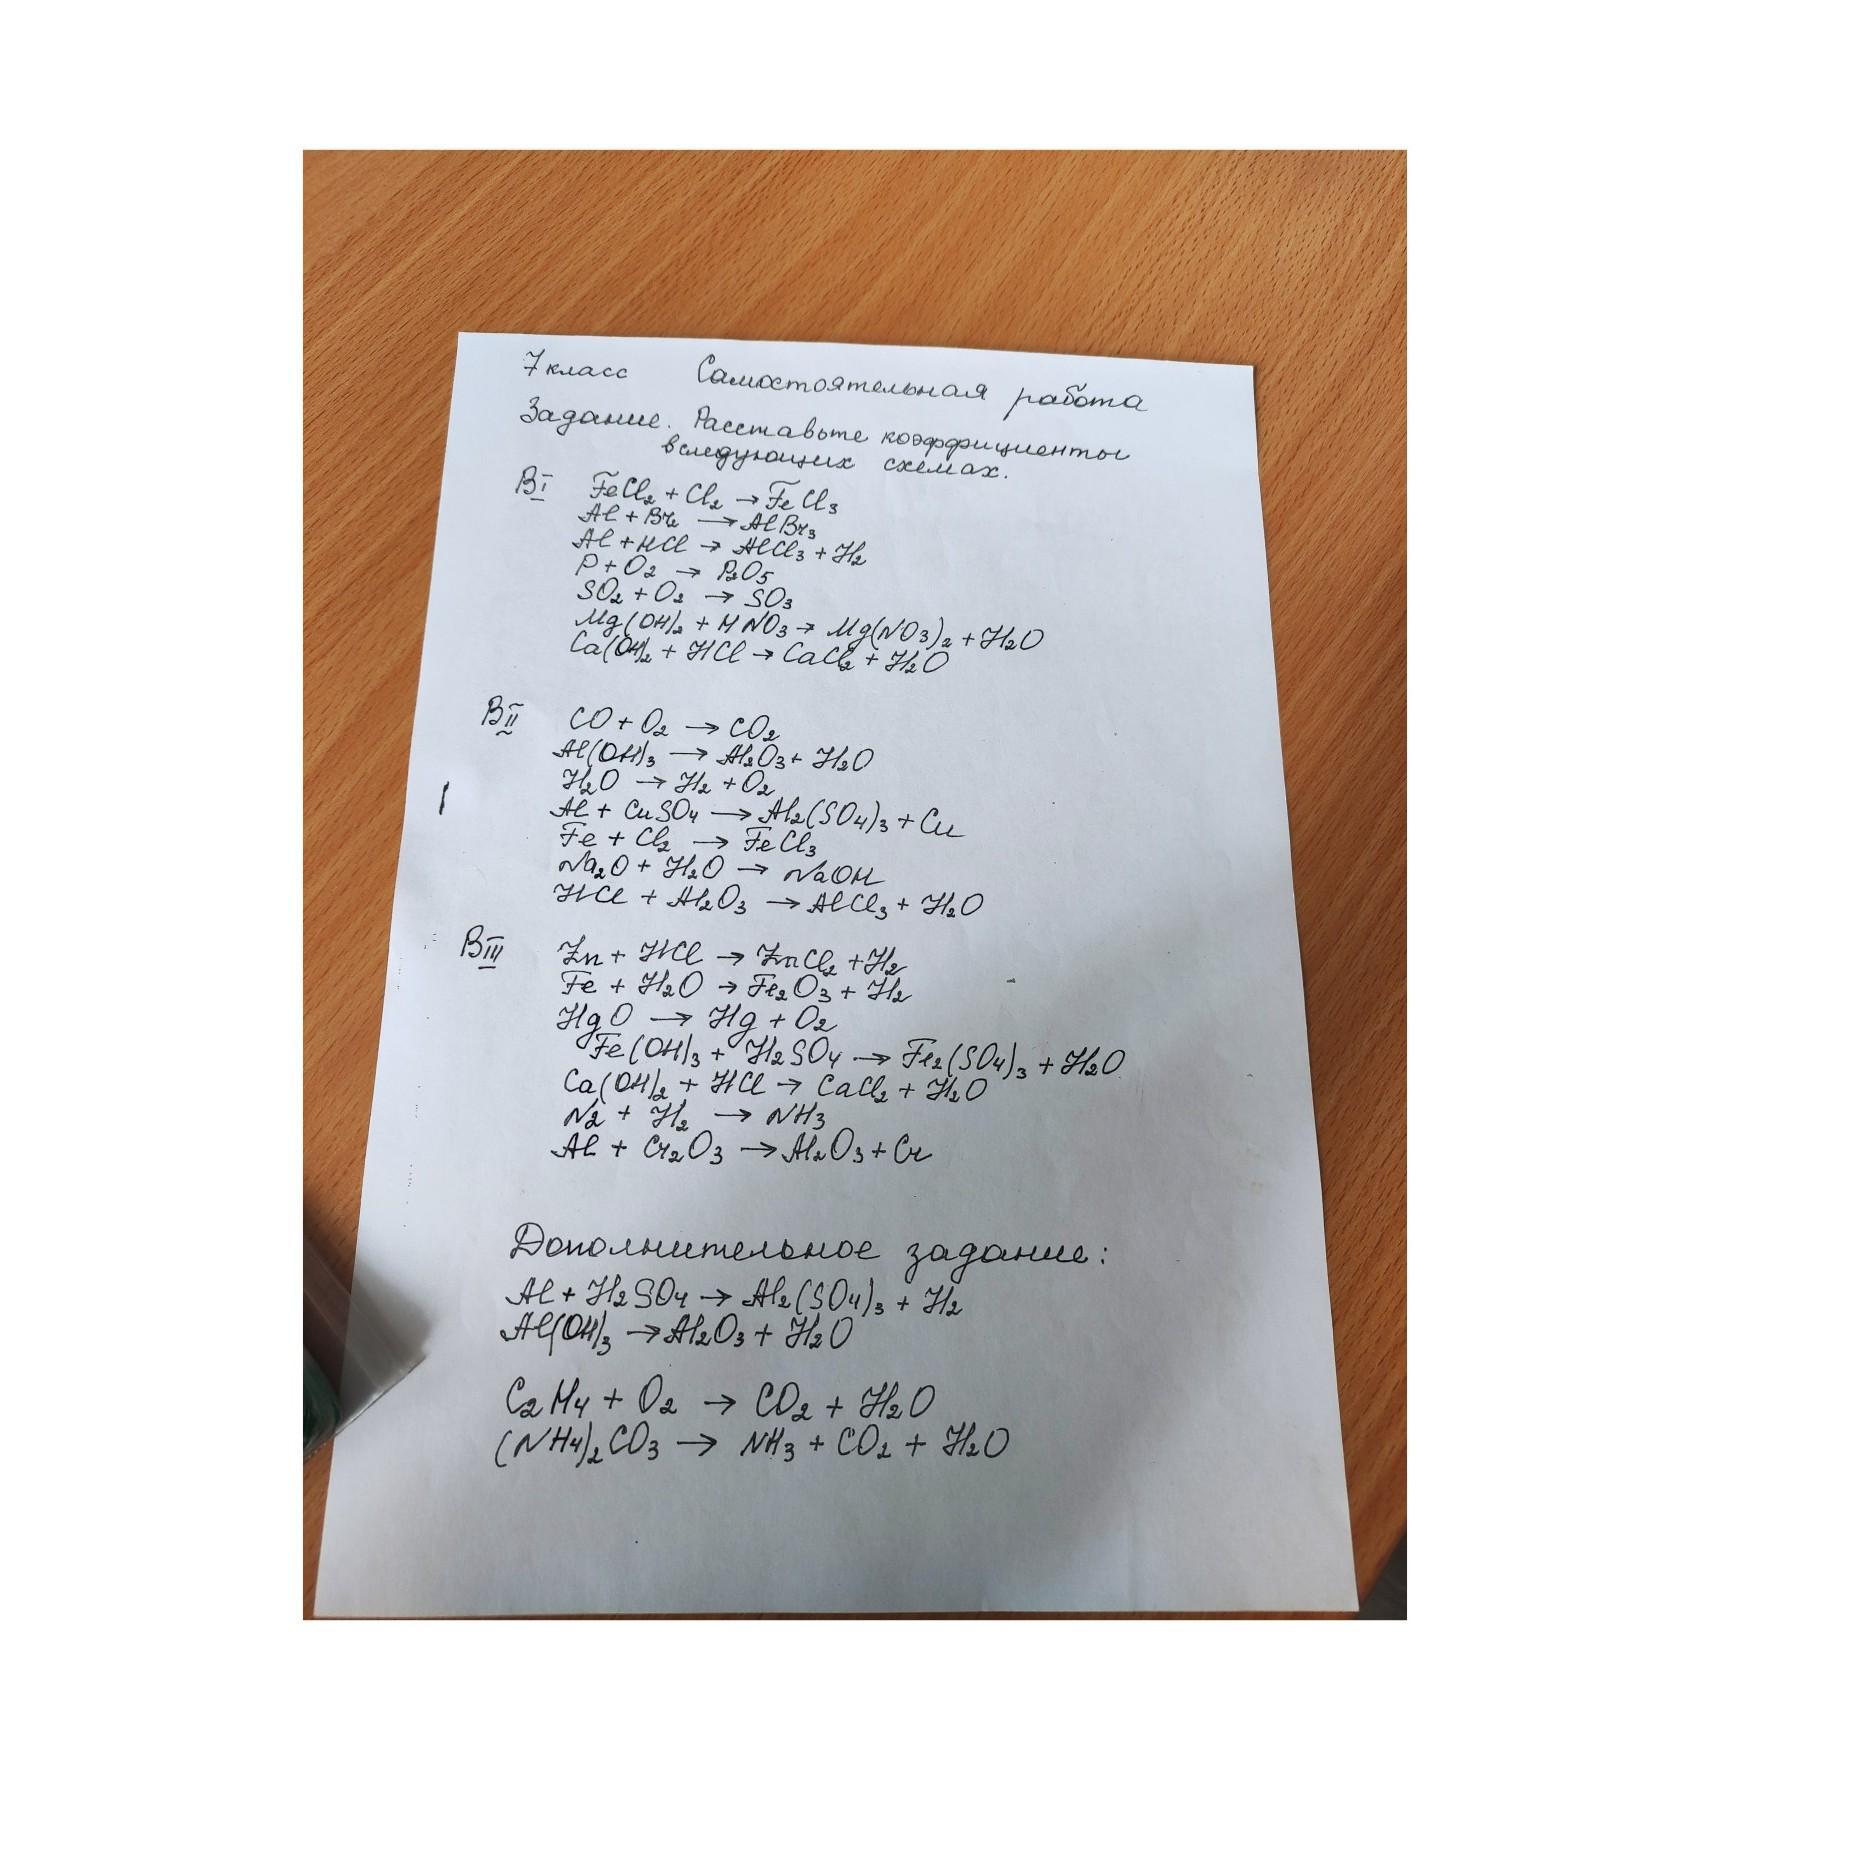 7 класс Самостоятельная работа
Задание. Расставьте коэффициенты
в следующих схемах.
BI FeCl₂ + Cl₂ → FeCl₃
Al + Br₂ → AlBr₃
Al + HCl → AlCl₃ + H₂
P + O₂ → P₂O₅
SO₂ + O₂ → SO₃
Mg(OH)₂ + HNO₃ → Mg(NO₃)₂ + H₂O
Ca(OH)₂ + HCl → CaCl₂ + H₂O
BII CO + O₂ → CO₂
Al(OH)₃ → Al₂O₃ + H₂O
H₂O → H₂ + O₂
Al + CuSO₄ → Al₂(SO₄)₃ + Cu
Fe + Cl₂ → FeCl₃
Na₂O + H₂O → NaOH
HCl + Al₂O₃ → AlCl₃ + H₂O
BIII Zn + HCl → ZnCl₂ + H₂
Fe + H₂O → Fe₂O₃ + H₂
HgO → Hg + O₂
Fe(OH)₃ + H₂SO₄ → Fe₂(SO₄)₃ + H₂O
Ca(OH)₂ + HCl → CaCl₂ + H₂O
N₂ + H₂ → NH₃
Al + Cr₂O₃ → Al₂O₃ + Cr
Дополнительное задание:
Al + H₂SO₄ → Al₂(SO₄)₃ + H₂
Al(OH)₃ → Al₂O₃ + H₂O
C₂H₄ + O₂ → CO₂ + H₂O
(NH₄)₂CO₃ → NH₃ + CO₂ + H₂O